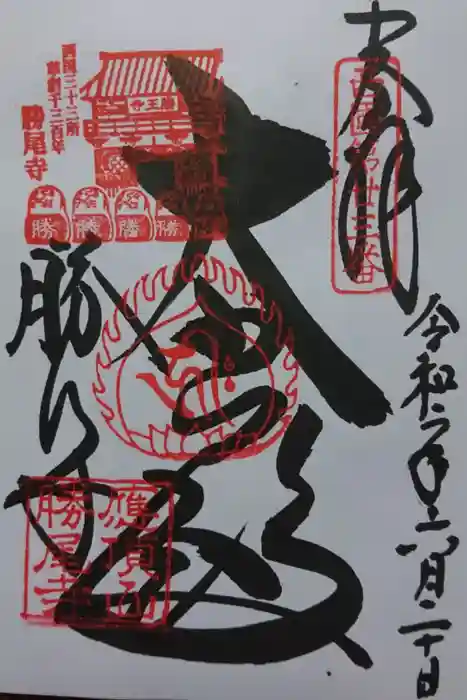 奉拝
西国第廿三番
令和二年六月二十日
大悲殿
西国三十三所
草創千三百年
勝尾寺
勝王寺
勝
勝
勝
勝
勝尾寺
應頂山
勝尾寺